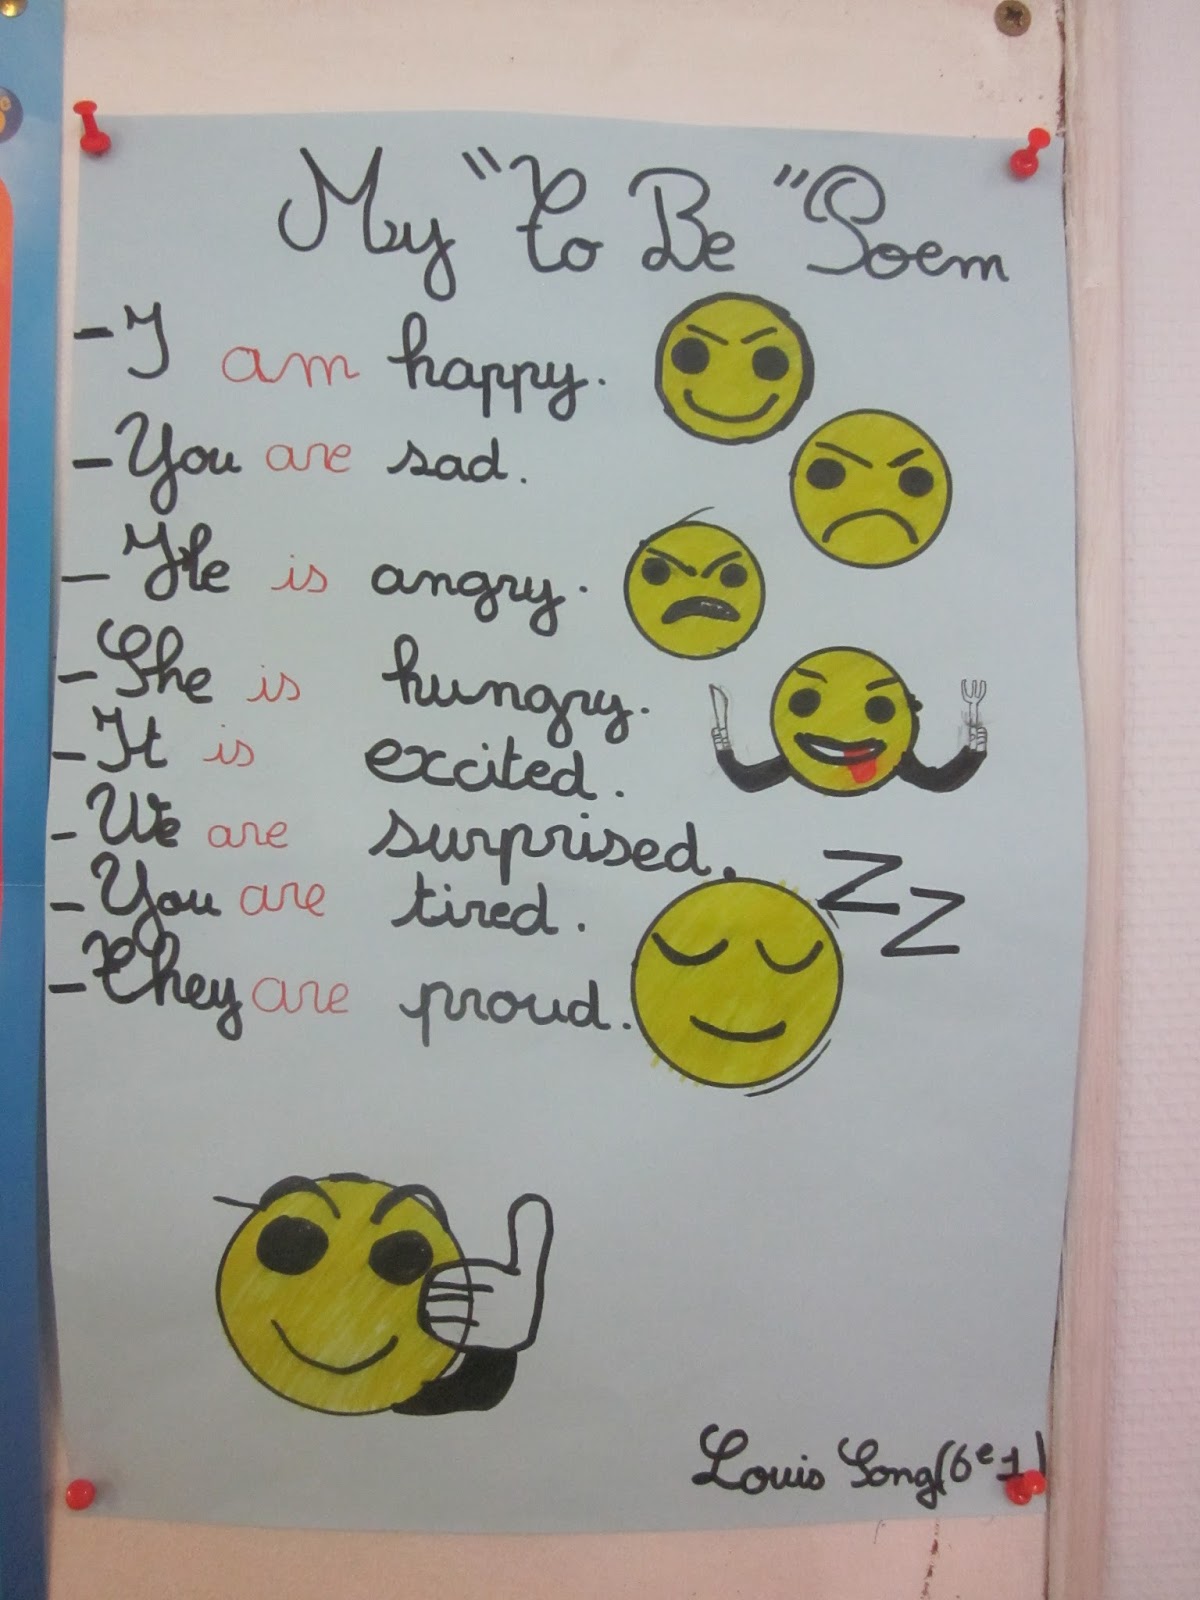 My "To Be" Poem
- I am happy.
- You are sad.
- He is angry.
- She is hungry.
- It is excited.
- We are surprised.
- You are tired.
- They are proud.
ZZ
Louis Song (6e1)